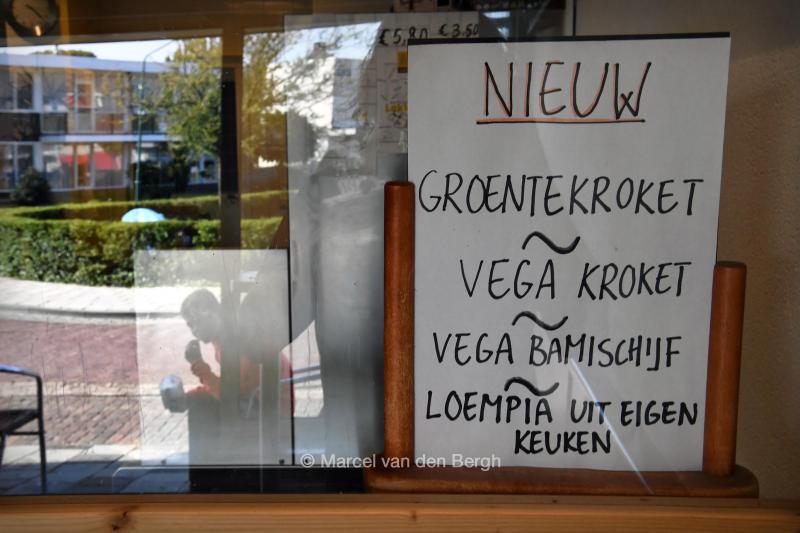 €5,80 €3.50
NIEUW
GROENTEKROKET
~
VEGA KROKET
~
VEGA BAMISCHIJF
~
LOEMPIA UIT EIGEN
KEUKEN
© Marcel van den Bergh